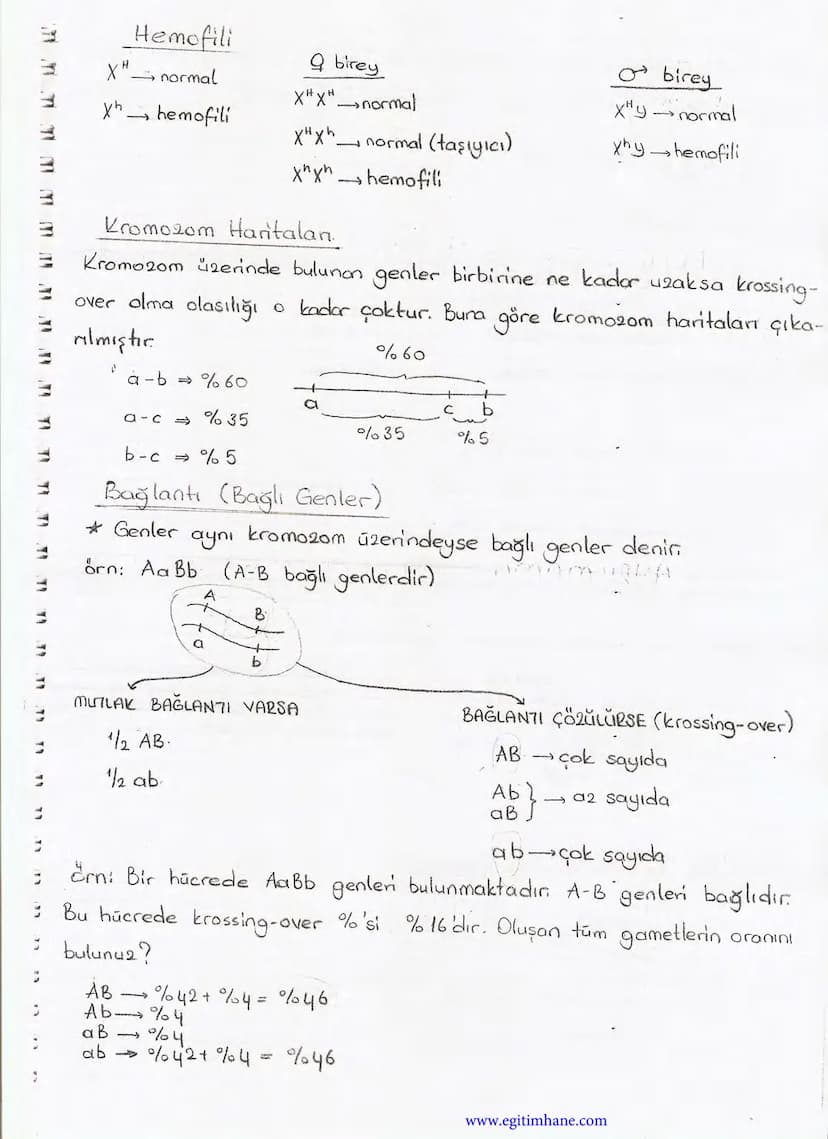 Hemofili
X^H → normal
X^h → hemofili
♀ birey
X^H X^H → normal
X^H X^h → normal (taşıyıcı)
X^h X^h → hemofili
♂ birey
X^H y → normal
X^h y → hemofili
Kromozom Haritaları
Kromozom üzerinde bulunan genler birbirine ne kadar uzaksa krossing-
over olma olasılığı o kadar çoktur. Buna göre kromozom haritaları çıka-
rılmıştır.
a-b ⇒ %60
a-c ⇒ %35
b-c ⇒ %5
%60
a c b
%35 %5
Bağlantı (Bağlı Genler)
* Genler aynı kromozom üzerindeyse bağlı genler denir.
örn: AaBb (A-B bağlı genlerdir)
A
B
a
b
MUTLAK BAĞLANTI VARSA
1/2 AB.
1/2 ab.
BAĞLANTI ÇÖZÜLÜRSE (krossing-over)
AB → çok sayıda
Ab
aB } → az sayıda
ab → çok sayıda
Örn: Bir hücrede AaBb genleri bulunmaktadır. A-B genleri bağlıdır.
Bu hücrede krossing-over %'si %16'dır. Oluşan tüm gametlerin oranını
bulunuz?
AB → %42 + %4 = %46
Ab → %4
aB → %4
ab → %42 + %4 = %46
www.egitimhane.com